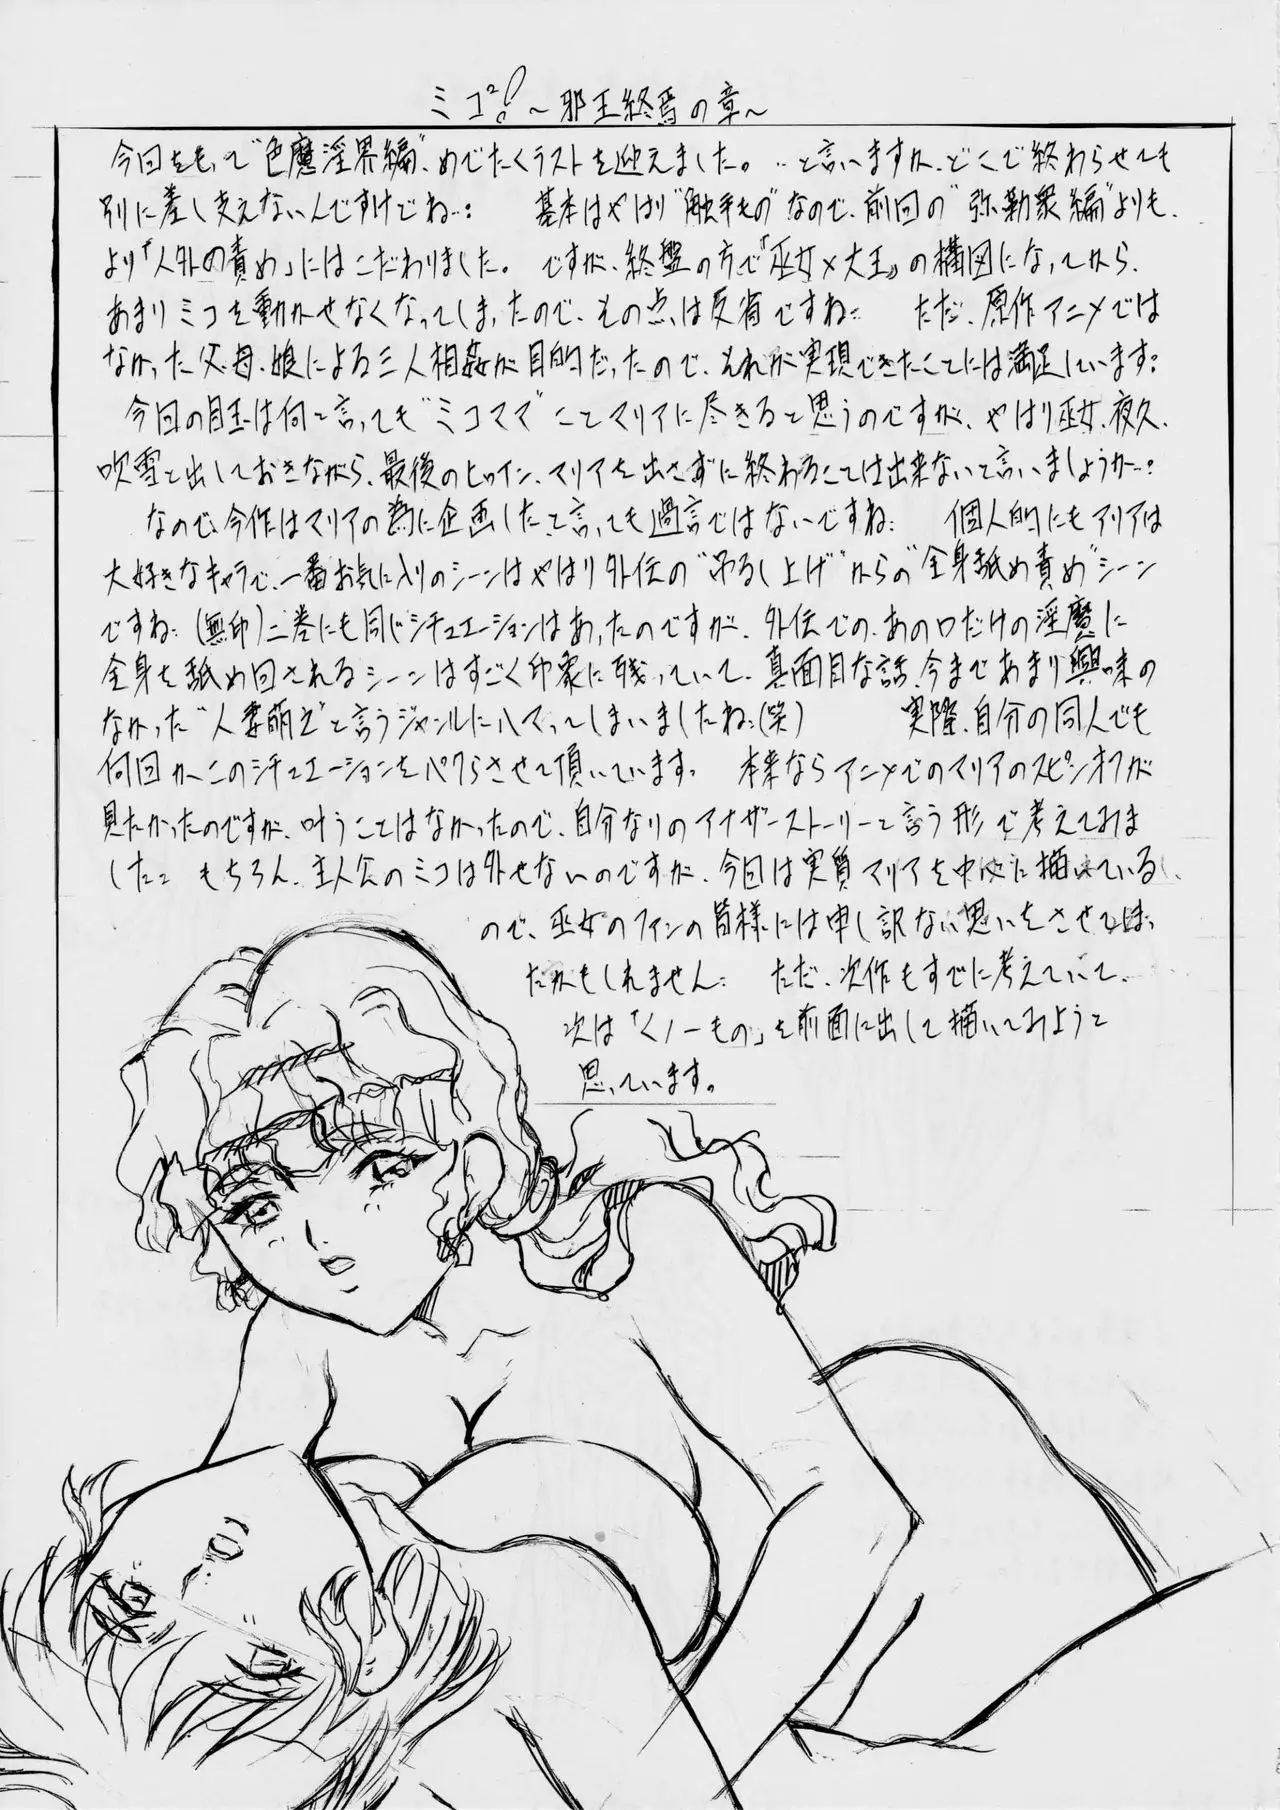 ミコ²! ～邪王終焉の章～
今回をもって"色魔淫界編"、めでたくラストを迎えました。…と言いますか、どこで終わらせても
別に差し支えないんですけどね…: 基本はやはり"触手もの"なので、前回の"弥勒衆編"よりも、
より「人外の責め」にはこだわりました。ですが、終盤の方で『巫女×大王』の構図になってから、
あまりミコを動かせなくなってしまったので、その点は反省ですね: ただ、原作アニメでは
なかった父・母・娘による三人相姦が目的だったので、それが実現できたことには満足しています:
今回の目玉は何と言っても"ミコママ"ことマリアに尽きると思うのですが、やはり巫女、夜久、
吹雪と出しておきながら、最後のヒロイン、マリアを出さずに終わることは出来ないと言いましょうか…:
なので、今作はマリアの為に企画したと言っても過言ではないですね: 個人的にもマリアは
大好きなキャラで、一番お気に入りのシーンはやはり外伝の"吊るし上げ"からの"全身舐め責め"シーン
ですね: (無印)二巻にも同じシチュエーションはあったのですが、外伝での、あの口だけの淫魔に
全身を舐め回されるシーンはすごく印象に残っていて、真面目な話、今まであまり興味の
なかった"人妻萌え"と言うジャンルにハマってしまいましたね:(笑) 実際、自分の同人でも
何回か、このシチュエーションをパクらさせて頂いています: 本来ならアニメでのマリアのスピンオフが
見たかったのですが、叶うことはなかったので、自分なりのアナザーストーリーと言う形で考えてみま
した: もちろん、主人公のミコは外せないのですが、今回は実質マリアを中心に描いている
ので、巫女のファンの皆様には申し訳ない思いをさせてしまっ
たかもしれません: ただ、次作もすでに考えていて、
次は「くノ一もの」を前面に出して描いてみようと
思っています。